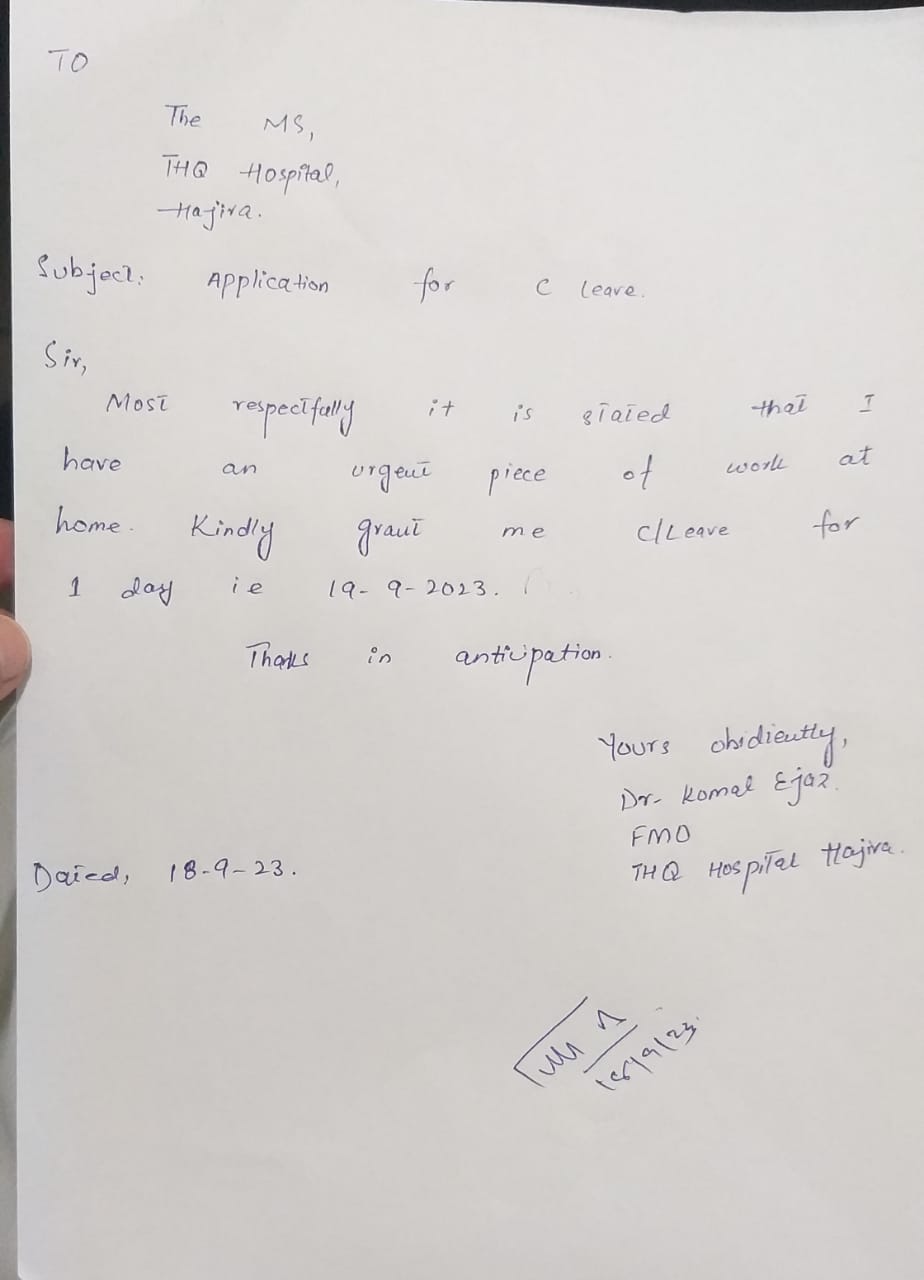 TO
The MS,
THQ Hospital,
Hajira.
Subject: Application for C leave.
Sir,
Most respectfully it is stated that I
have an urgent piece of work at
home. Kindly grant me C/Leave for
1 day ie 19-9-2023.
Thanks in anticipation.
Yours obidiently,
Dr. Komal Ejaz.
FMO
THQ Hospital Hajira.
Dated, 18-9-23.
18/9/23.